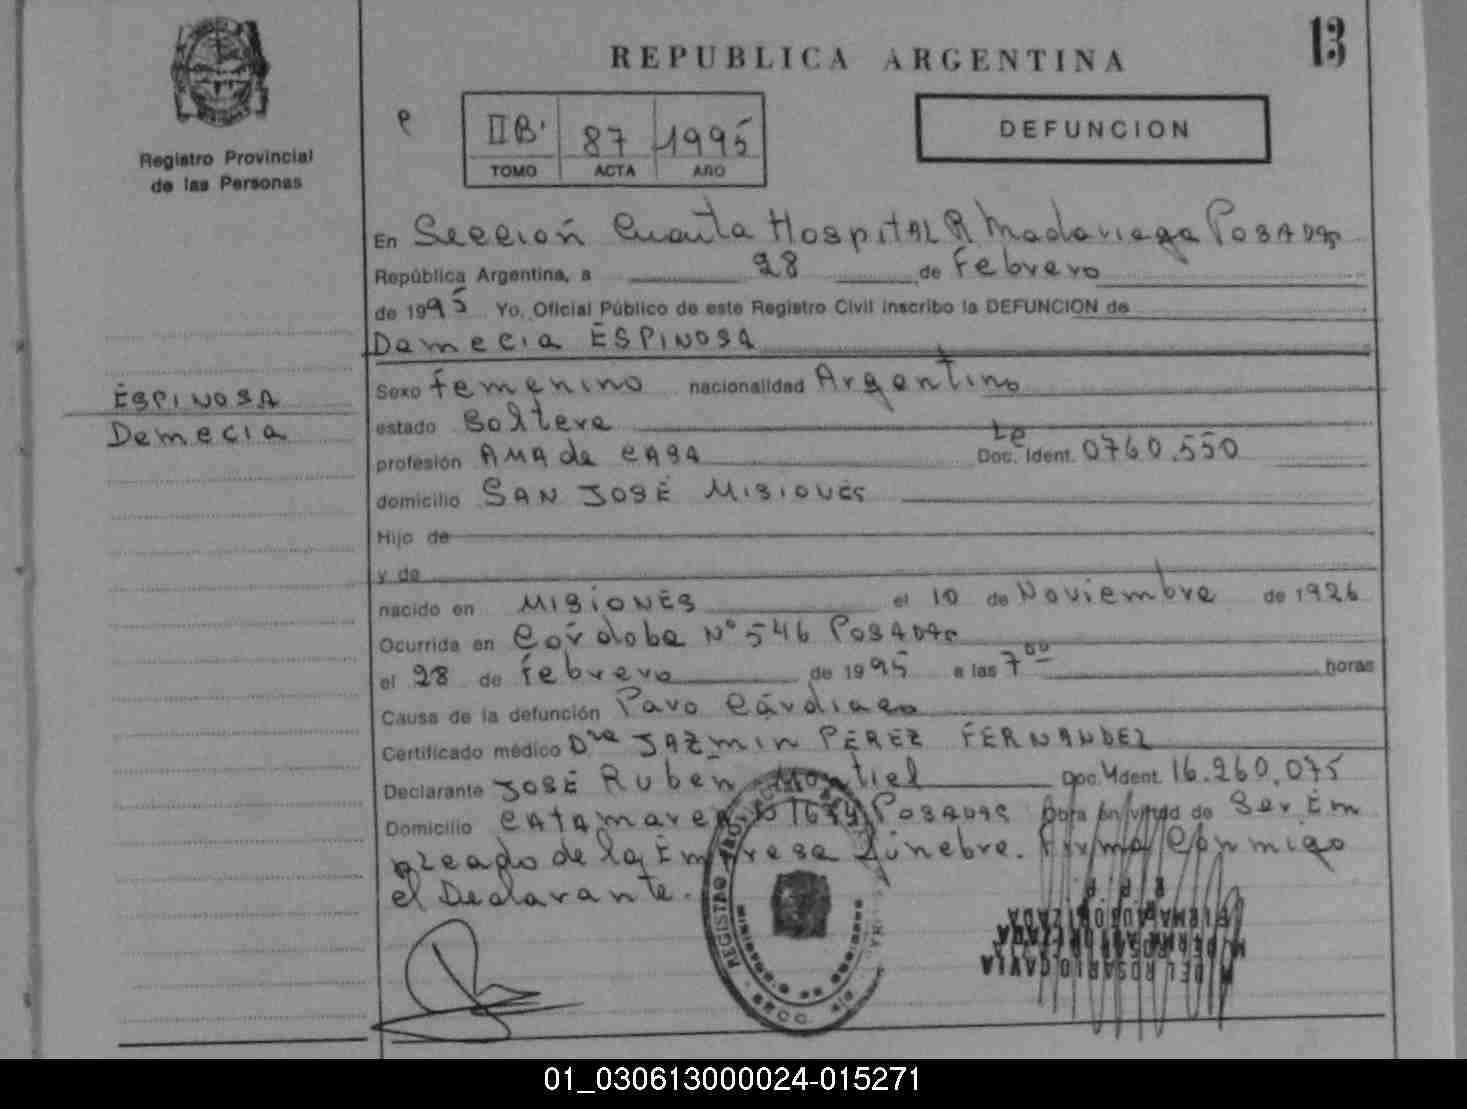 REPUBLICA ARGENTINA
13
Registro Provincial
de las Personas
IIB' 87 1995
TOMO ACTA AÑO
DEFUNCION
En Sección Cuarta Hospital R Madariaga Posadas
República Argentina, a 28 de Febrero
de 1995 Yo, Oficial Público de este Registro Civil inscribo la DEFUNCION de
Demecia ESPINOSA
ESPINOSA
Demecia
Sexo femenino nacionalidad Argentino
estado Soltera
profesión AMA de CASA Doc. Ident. Le 0760.550
domicilio SAN JOSÉ MISIONES
Hijo de
y de
nacido en MISIONES el 10 de Noviembre de 1926
Ocurrida en Córdoba Nº 546 POSADAS
el 28 de Febrero de 1995 a las 7 00 horas
Causa de la defunción Paro Cárdiaco
Certificado médico Dra JAZMIN PÉREZ FERNANDEZ
Declarante JOSÉ Rubén Montiel Doc. Ident. 16.260.075
Domicilio CATAmarca 1679 POSADAS Obra en virtud de Ser Em
pleado de la Empresa Fúnebre. Firma Conmigo
el Declarante.
REGISTRO PROVINCIAL DE LAS
MINISTERIO DE GOBIERNO
SECC. 4
R. P. P.
FIRMA AUTORIZADA
DEL ROSARIO GAVIA
01_030613000024-015271